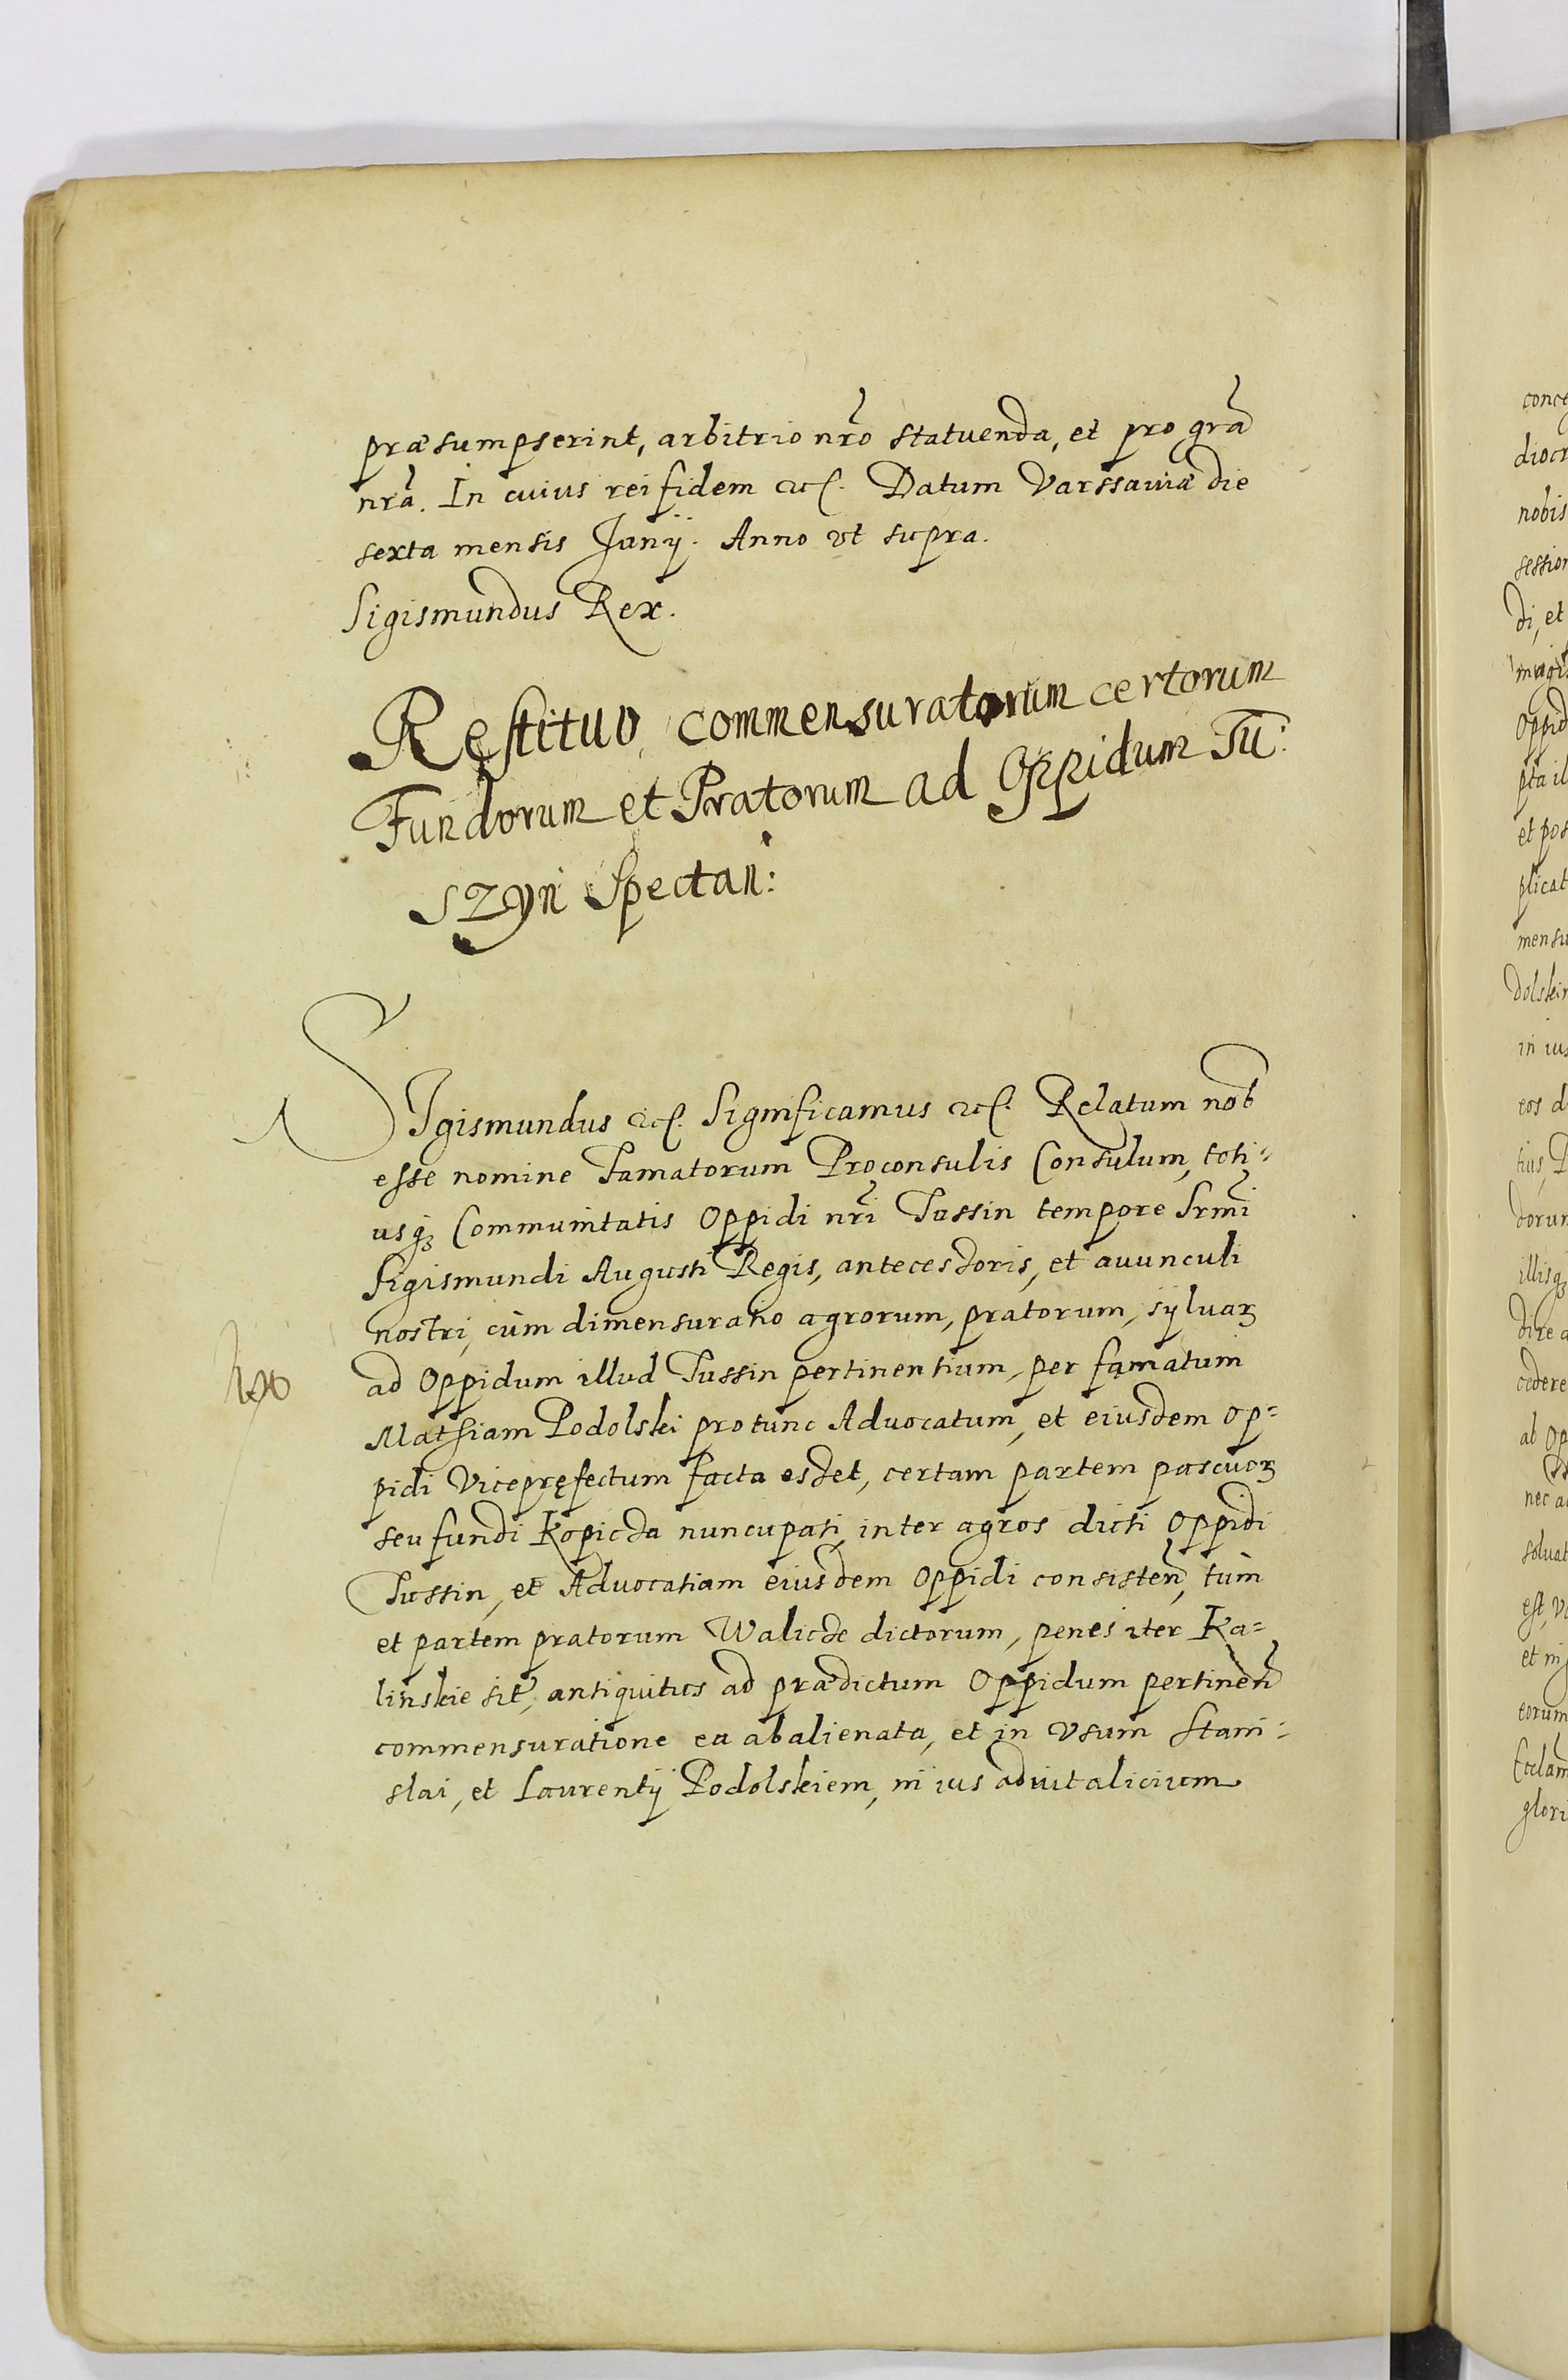 præsumpserint, arbitrio nr̃o statuenda, et pro gr̃a
nr̃a. In cuius rei fidem etc. Datum Varssaviæ die
sexta mensis Junij. Anno ut supra.
Sigismundus Rex.
Restituo commensuratorum certorum
Fundorum et Pratorum ad Oppidum Tu:
szyn Spectan:
SIgismundus etc. Significamus etc. Relatum nob
esse nomine Famatorum Proconsulis Consulum, toti=
usq; Communitatis Oppidi nr̃i Tussin tempore Srm̃i
Sigismundi Augusti Regis, antecessoris, et avunculi
nostri, cùm dimensuratio agrorum, pratorum, sylvarꝫ
ad Oppidum illud Tussin pertinentium, per famatum
Mathiam Podolski protunc Advocatum, et eiusdem op=
pidi Viceprefectum facta esset, certam partem pascuorꝫ
seu fundi Kopicza nuncupati, inter agros dicti Oppidi
Tussin, et Advocatiam eiusdem Oppidi consisteñ, tùm
et partem pratorum Walicze dictorum, penes iter Ka=
linskie sit, antiquitus ad prædictum Oppidum pertineñ
commensuratione ea abalienata, et in Vsum Stani=
slai, et Laurentij Podolskiem, in ius advitalicium
conce
diocr
nobis
session
di, et
magis
Oppid
pta il
et pos
plicat
mensu
dolskin
in ius
eos d
tius, P
dorum
illisq;
dire a
cedere
ab Op
nec a
soluat
est, V
et in
eorum
Ecclam
glori